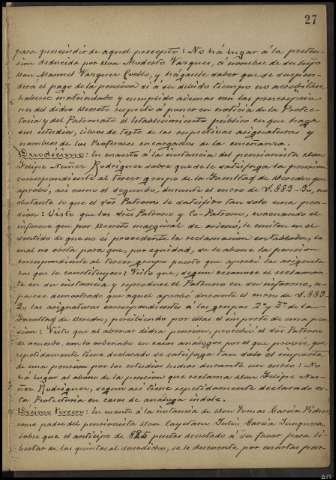 27
para prescindir de aquel precepto: No há lugar á la preten-
sion deducida por Don Modesto Vazquez, á nombre de su hijo
Don Manuel Vazquez Cuello, y hágasele saber que se suspen-
derá el pago de la pension si á su debido tiempo no acredita
haberse matriculado y cumplido ademas con las prescripcio-
nes del dicho Decreto respecto á poner en noticia de la Protec-
toria y del Patronato el establecimiento público en que haga
sus estudios, libros de texto de las respectivas asignaturas y
nombres de los Profesores encargados de la enseñanza.
Duodécimo: En cuanto á la instancia del pensionista Don
Felipe Nuñez Rodriguez sobre que se le satisfaga la pension
correspondiente al tercer grupo de la Facultad de Derecho que
aprobó, asi como el segundo, durante el curso de 1.893-94, no
obstante lo que el Sr. Patrono le satisfizo tan solo una pen-
sion: Visto que los Sres. Patrono y Co-Patrono, evacuando el
informe que por decreto marginal de se les emiten en el
sentido de que es procedente la reclamacion entablada, lo
cual no obsta para que, por equidad, se le abone la pension
correspondiente al tercer grupo puesto que aprobó las asignatu-
ras que lo constituyen: Visto que, segun reconoce el reclaman-
te en su instancia y reproduce el Patrono en su informe, a-
parece demostrado que aquel aprobó durante el curso de 1.893-
94 las asignaturas correspondientes á los grupos 2º y 3º de la
Facultad de Derecho, percibiendo por ellas el importe de una pen-
sion: Visto que al abonar dicha pension, procedió el Sr. Patrono
de acuerdo con lo ordenado en casos análogos por el que provee, que
repetidamente tiene declarado se satisfaga tan solo el importe
de una pension por los estudios hechos durante un curso: No
há lugar al abono de la pension que reclama Don Felipe Nu-
ñez Rodriguez, segun asi tiene repetidamente declarado es-
ta Protectoria en casos de análoga índole.
Décimo tercero: En cuanto á la instancia de Don Tomas Garcia
como padre del pensionista Don Cayetano Garcia
sobre que el anticipo de 825 pesetas acordado á su favor para li-
bertar de las quintas al citado, se le descuente por cuartas par-